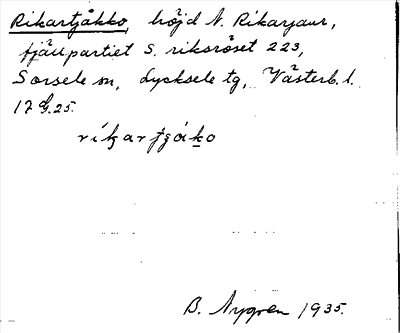 Rikartjåkko, höjd N. Rikarjaur,
fjällpartiet S. riksröset 223,
Sorsele sn, Lycksele tg, Västerb. l.
17 G. 25.
rikartjåko
B. Nygren 1935.